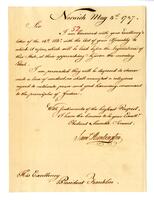 Norwich May 5th 1787.
Sir
I am honored with your Excellency's
letter of the 14th with the list of your Assembly to
which it refers, which will be laid before the Legislature of
this State, at their approaching session the ensuing
Week.
I am persuaded they will be disposed to observe
such a line of conduct, as shall manifest a religious
regard to national peace and good harmony consonant to
the principles of Justice.
With Sentiments of the highest Respect,
I have the honour to be your Excelly's
Obedient & humble Servant
Saml Huntington
His Excellency
President Franklin